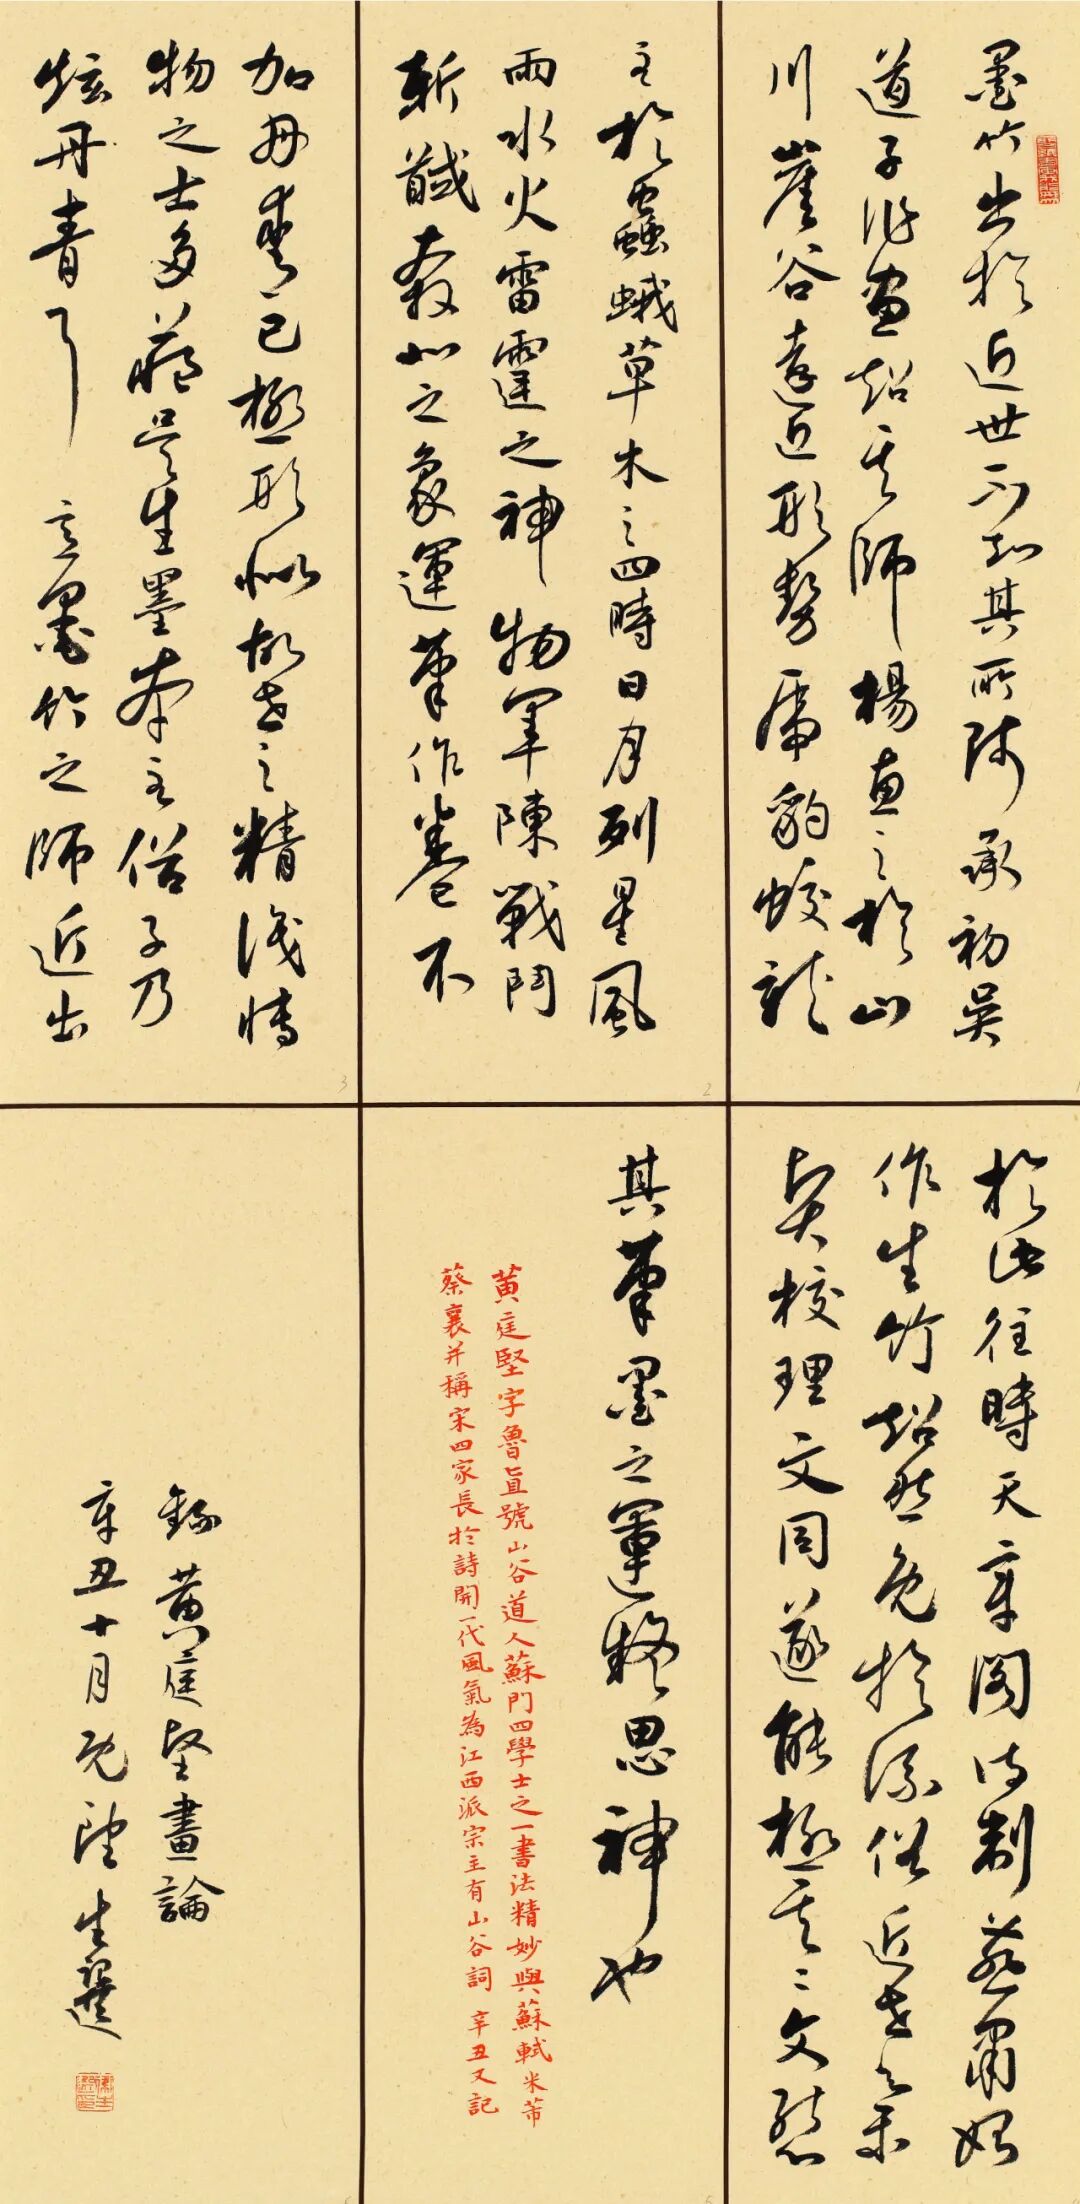 墨竹出於近世不知其所師承初吳
道子作畫超其師楊惠之於山
川崖谷遠近形勢虎豹蛟龍
至於蟲蛾草木之四時日月列星風
雨水火雷霆之神物軍陳戰鬥
斬馘奔北之象運筆作卷不
加丹青已極形似故世之精識博
物之士多藏吳生墨本至俗子乃
炫丹青耳 意墨竹之師近出
於此往時天章閣待制燕肅始
作生竹超然免於流俗近世集
賢校理文同遂能極其變態
其筆墨之運疑鬼神也
黃庭堅字魯直號山谷道人蘇門四學士之一書法精妙與蘇軾米芾
蔡襄并稱宋四家長於詩開一代風氣為江西派宗主有山谷詞 辛丑又記
錄黃庭堅畫論
辛丑十月既望生
1
2
3
5
6